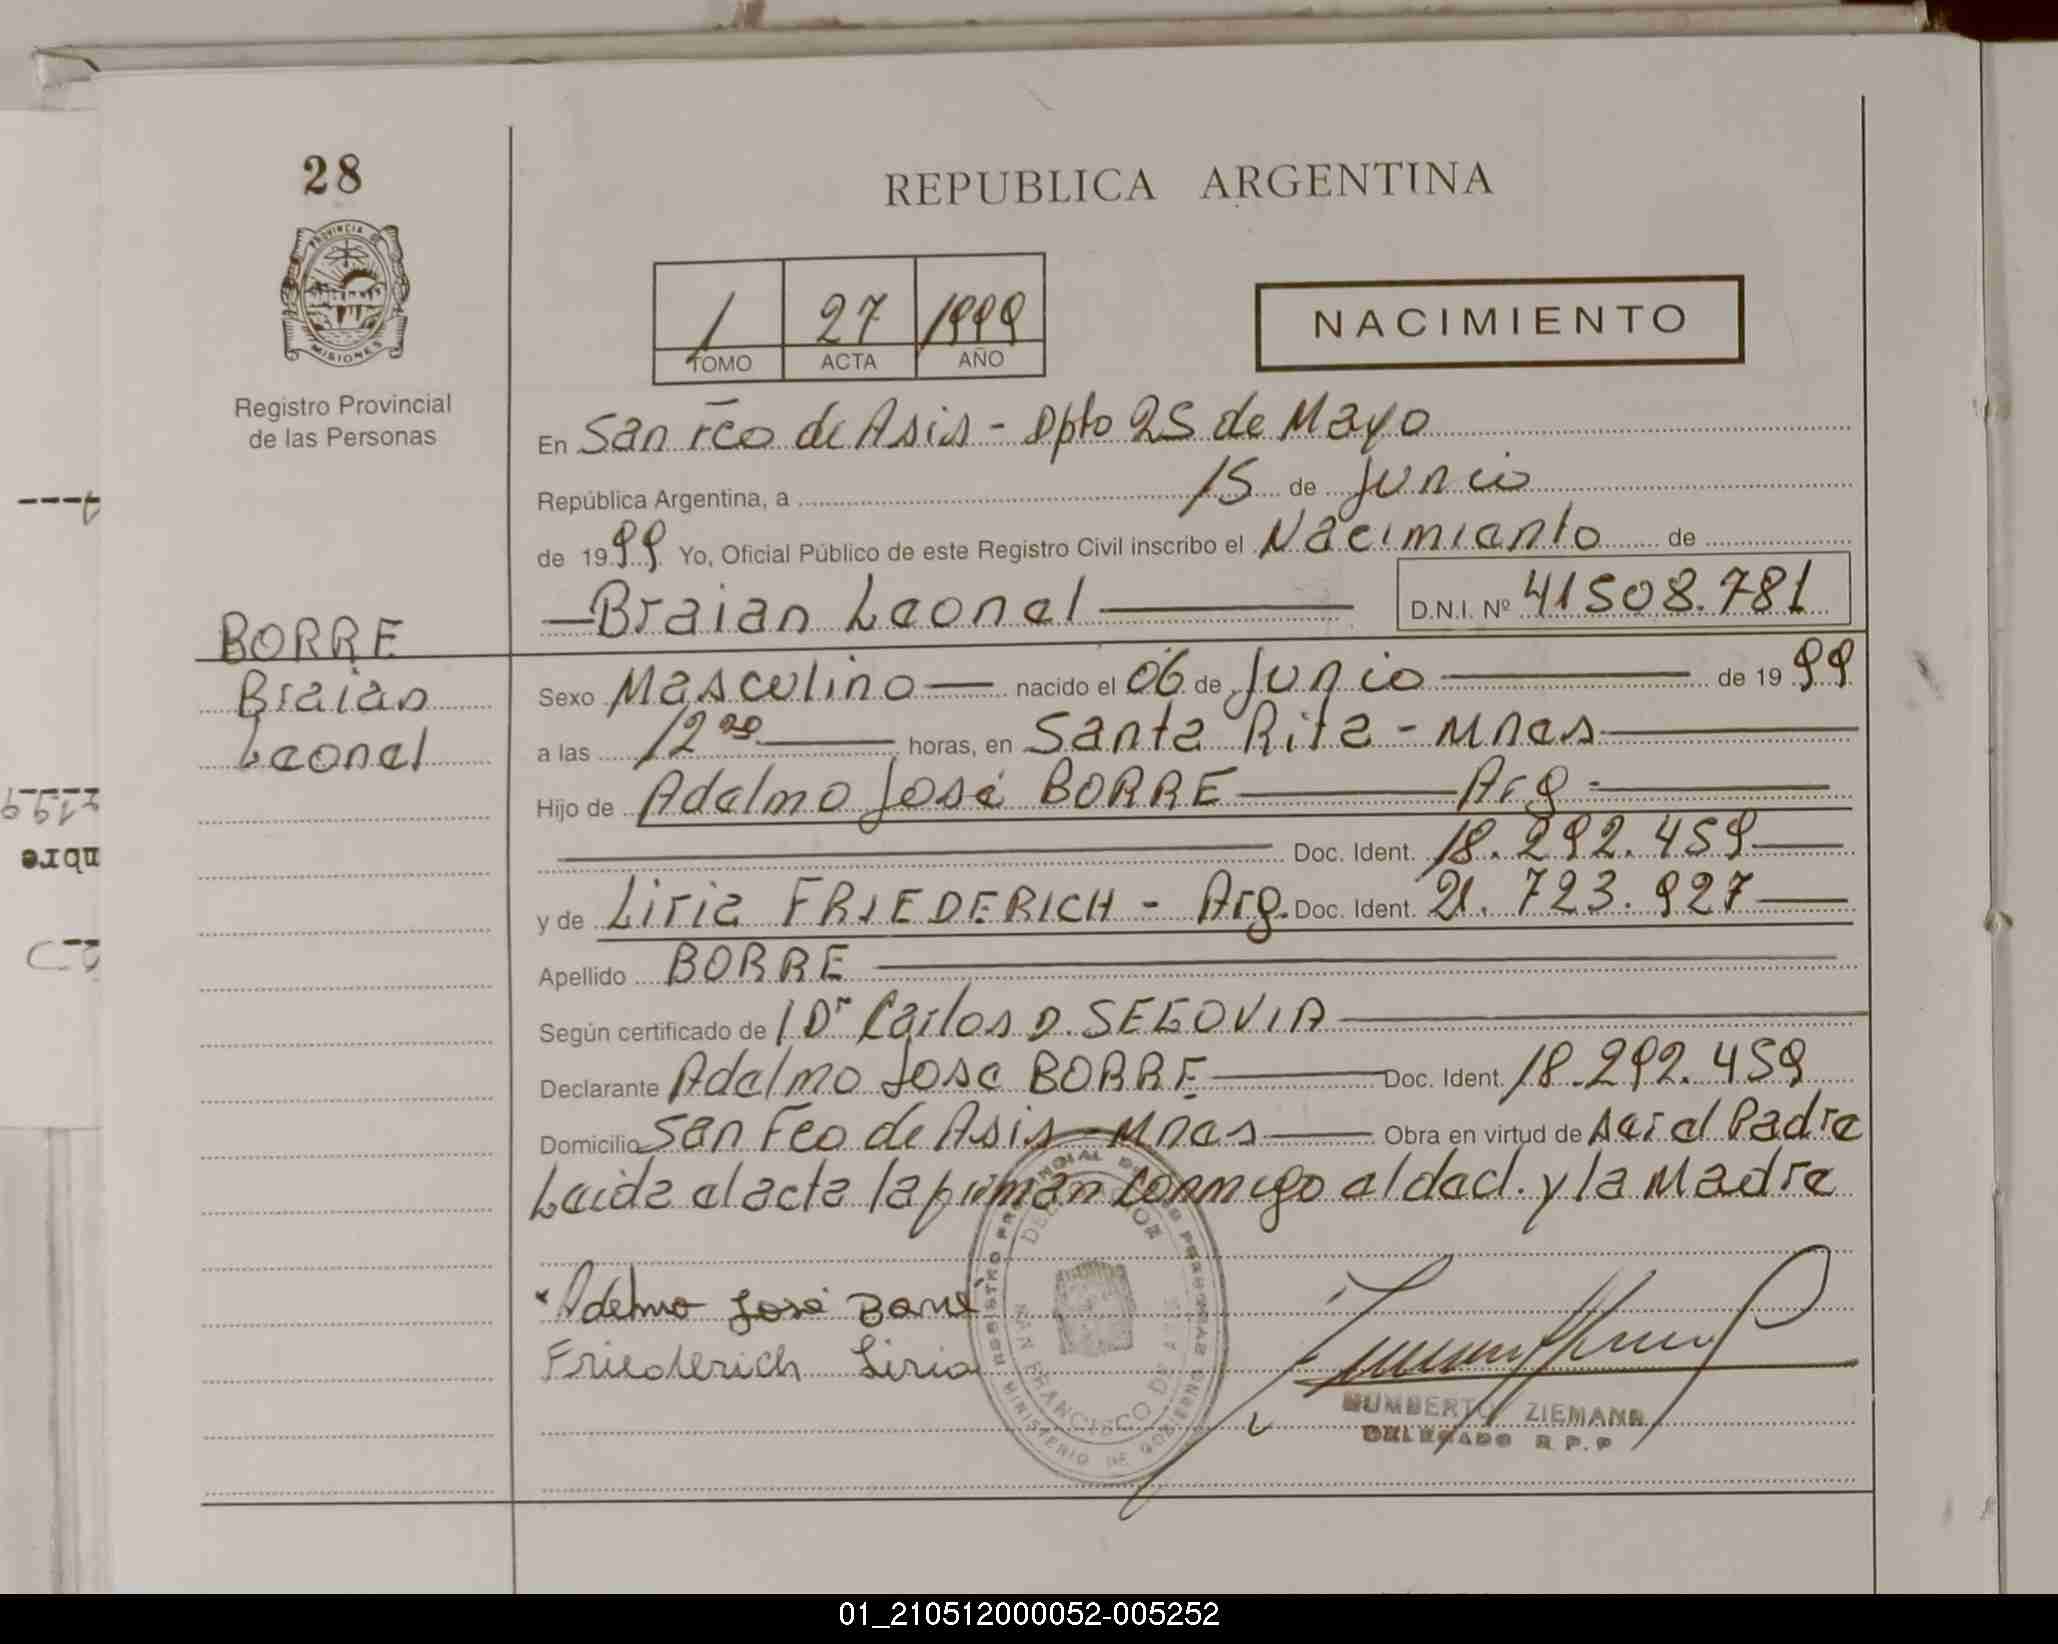 28
REPUBLICA ARGENTINA
PROVINCIA DE
MISIONES
Registro Provincial
de las Personas
1 27 1999
TOMO ACTA AÑO
NACIMIENTO
En San Fco de Asis - Dpto 25 de Mayo
República Argentina, a 15 de Junio
de 1999 Yo, Oficial Público de este Registro Civil inscribo el Nacimiento de
Braian Leonel D.N.I. Nº 41508.781
BORRE
Braian
Leonel
Sexo Masculino nacido el 06 de Junio de 1999
a las 12 horas, en Santa Rita - Mnes
Hijo de Adelmo José BORRE Arg -
Doc. Ident. 18.292.459
y de Liria FRIEDERICH - Arg. Doc. Ident. 21.723.927
Apellido BORRE
Según certificado de Dr Carlos D. SEGOVIA
Declarante Adelmo José BORRE Doc. Ident. 18.292.459
Domicilio San Fco de Asis - Mnes Obra en virtud de ser el Padre
Leida el acta la firman conmigo el decl. y la Madre
Adelmo José Borré
Friederich Liria
REGISTRO PROVINCIAL DE LAS PERSONAS
MINISTERIO DE GOBIERNO
SAN FRANCISCO DE ASIS
HUMBERTO ZIEMANN
DELEGADO R.P.P
01_210512000052-005252